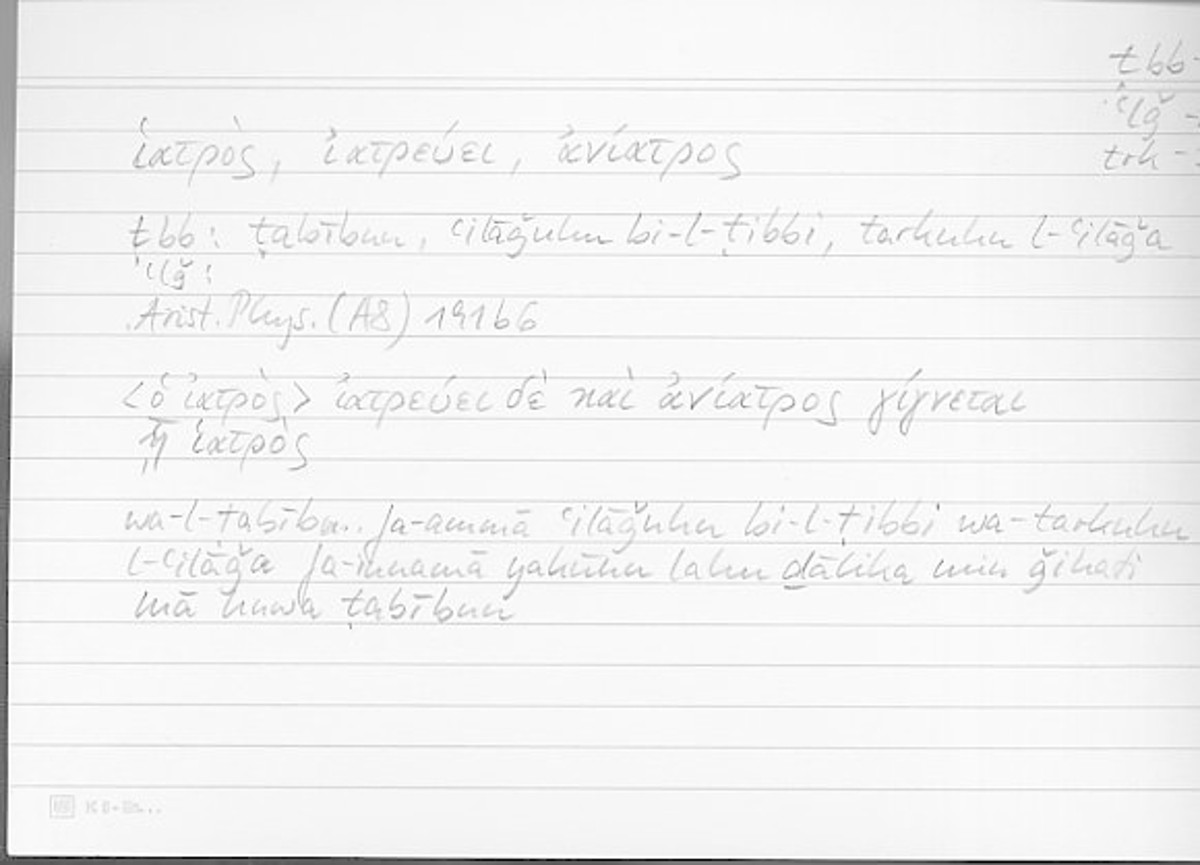 ṭbb-
ʿlǧ -
trk -
ἰατρὸς, ἰατρεύει, ἀνίατρος
ṭbb: ṭabībun, ʿilāǧuhu bi-l-ṭibbi, tarkuhu l-ʿilāǧa
ʿlǧ:
Arist. Phys. (A8) 191b6
<ὁ ἰατρὸς> ἰατρεύει δὲ καὶ ἀνίατρος γίγνεται
ᾗ ἰατρὸς
wa-l-ṭabību.. fa-ammā ʿilāǧuhu bi-l-ṭibbi wa-tarkuhu
l-ʿilāǧa fa-innamā yakūnu lahu ḏālika min ǧihati
mā huwa ṭabībun